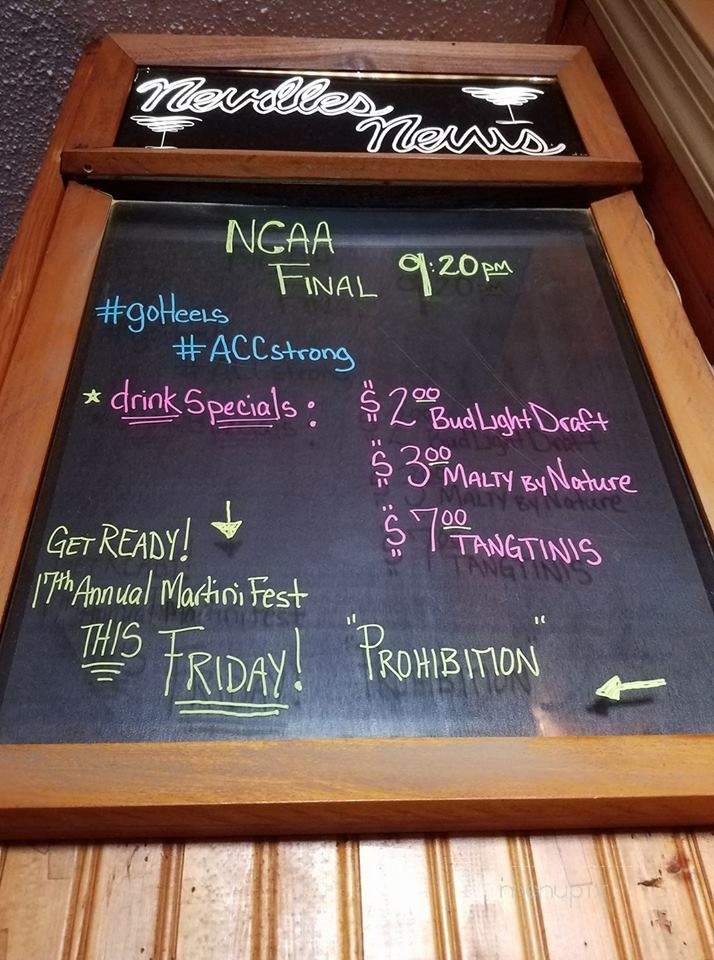 Nevilles
News
NCAA
FINAL 9:20pm
#goHeels
#ACCstrong
drink Specials: $2.00 Bud Light Draft
$3.00 MALTY by Nature
$7.00 TANGTINIS
GET READY!
17th Annual Martini Fest
THIS FRIDAY! "PROHIBITION"